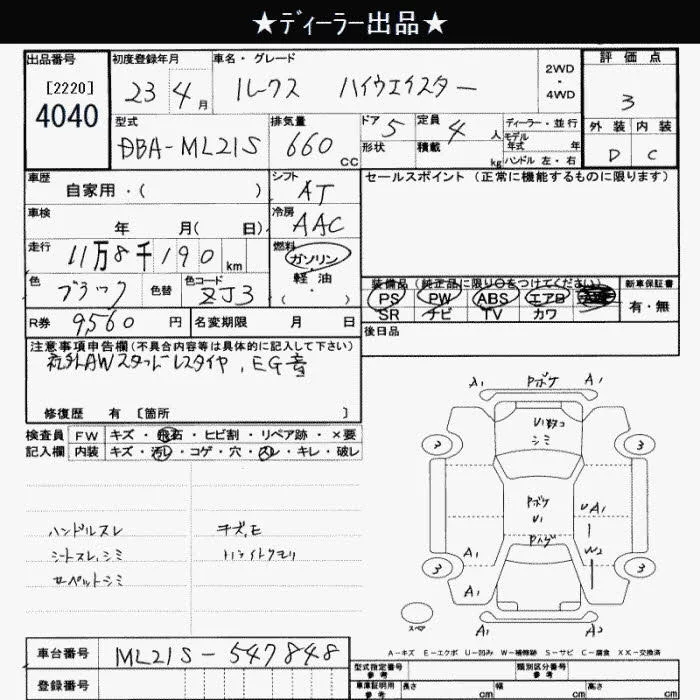 ★ディーラー出品★
出品番号 初度登録年月 車名・グレード 2WD・4WD 評価点
[2220] 23年4月 ルークス ハイウエイスター 3
4040
型式 排気量 ドア 定員 ディーラー・並行 外装 内装
DBA-ML21S 660cc 5 4人 モデル年式 年 D C
形状 積載 kg ハンドル 左・右
車歴 シフト セールスポイント(正常に機能するものに限ります)
自家用・( ) AT
車検 冷房
年 月( 日) AAC
走行 燃料
11万8千190km ガソリン
軽油
( ・ )
色 色替 色コード 装備品(純正品に限り○をつけてください) 新車保証書
ブラック ZJ3 PS PW ABS エアB 有・無
SR ナビ TV カワ
R券 9,560円 名変期限 月 日 後日品
注意事項申告欄(不具合内容等は具体的に記入して下さい)
社外AWスタッドレスタイヤ、EG音
修復歴 有 [箇所 ]
検査員 FW キズ・飛石・ヒビ割・リペア跡・×要
記入欄 内装 キズ・汚レ・コゲ・穴・スレ・キレ・破レ
A1 Pボケ A1
U1
シミ
3 3
Pボケ
U1 UA1
Pハゲ
W2
A1
3 3
A1
スペア
A1 A2
ハンドルスレ
シートスレ、シミ
カーペットシミ
キズ、E
トライトクモリ
A-キズ E-エクボ U-凹み W-補修跡 S-サビ C-腐食 XX-交換済
車台番号 ML21S-547848
型式指定番号 参考 類別区分番号 参考
登録番号 車庫証明用 参考 長さ cm 幅 cm 高さ cm